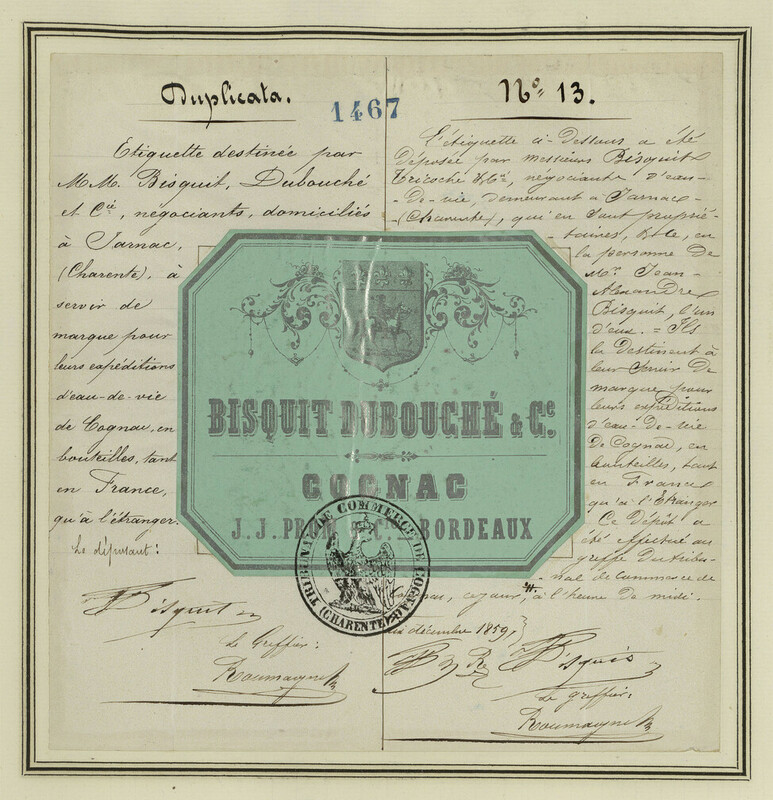 Duplicata.
1467
Nº 13.
Etiquette destinée par
MM. Bisquit, Dubouché
et Cie, négociants, domiciliés
à Jarnac,
(Charente), à
servir de
marque pour
leurs expéditions
d'eau-de-vie
de Cognac, en
bouteilles, tant
en France,
qu'à l'étranger.
Le déposant:
Bisquit
Le Greffier:
Roumaguet
L'étiquette ci-Dessous a été
Déposée par messieurs Bisquit
Tricoche & Cie, négociants d'eau-
-de-vie, demeurant à Jarnac
(Charente), qui en sont proprié-
-taires, &, en
la personne de
Mr. Jean-
Alexandre
Bisquit, l'un
d'eux. = Ils
la Destinent à
leur Servir De
marque pour
leurs expéditions
d'eau-De-vie
De Cognac, en
bouteilles, tant
en France
qu'à l'Etranger
Ce Dépôt a
été effectué au
greffe du tribu-
-nal de commerce de
Cognac, ce jour, à l'heure De midi.
décembre 1859,
Bisquit
Le greffier:
Roumaguet
BISQUIT DUBOUCHÉ & Ce.
COGNAC
J. J. BORDEAUX
TRIBUNAL DE COMMERCE DE COGNAC
(CHARENTE)